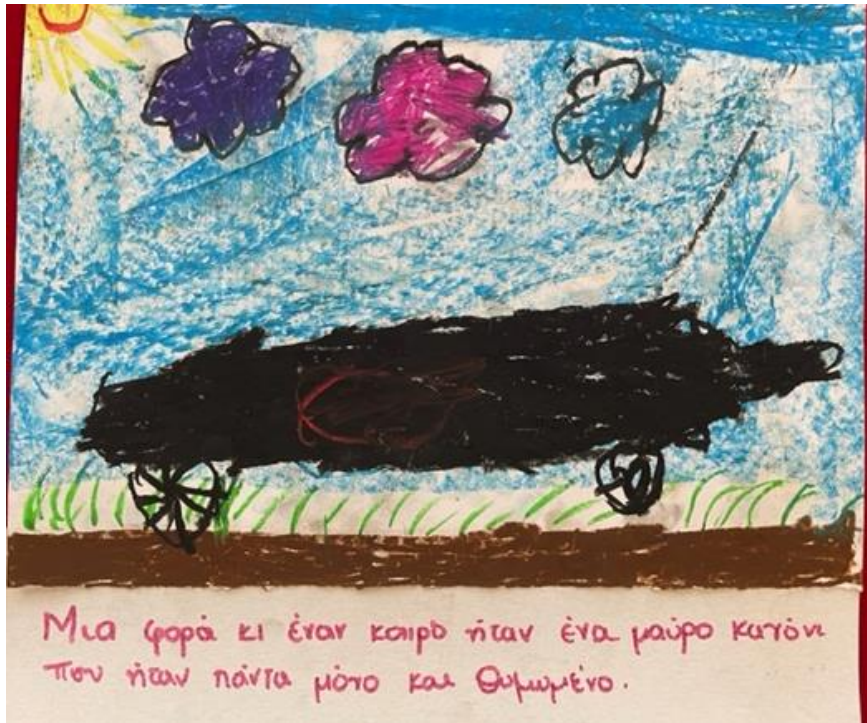 Μια φορά κι έναν καιρό ήταν ένα μαύρο κανόνι
που ήταν πάντα μόνο και θυμωμένο.